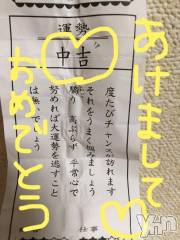 運勢
中吉
度たびチャンスが訪れます
それをうまく掴みましょう
驕り高ぶらず平常心で
努めれば大運勢を逃すこと
は無いでしょう
仕事
あけまして
おめでとう